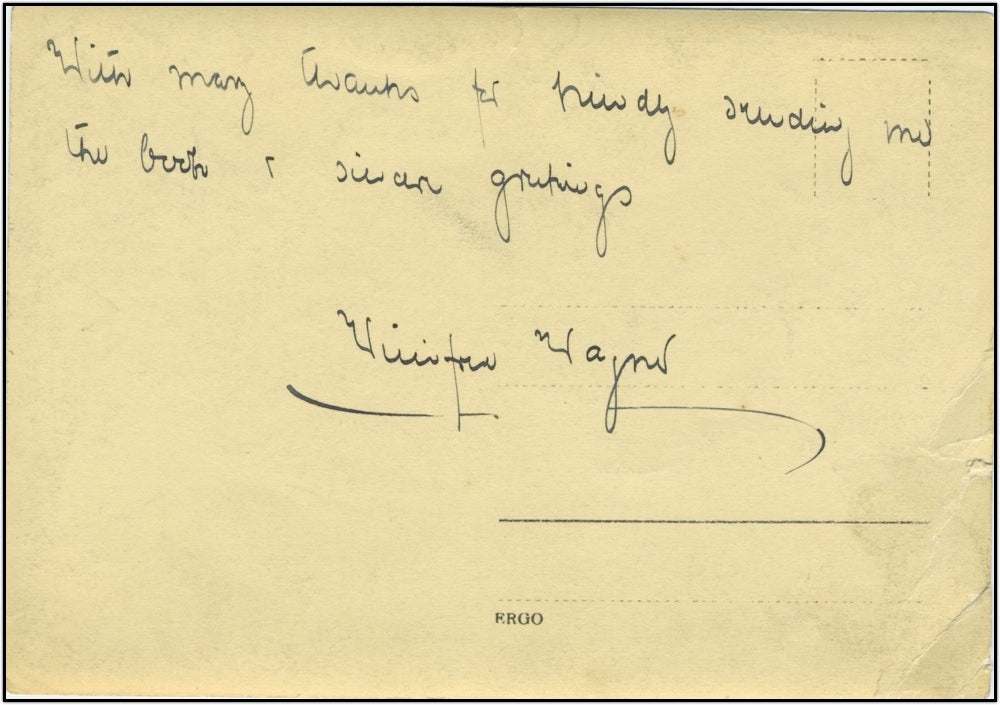 With many thanks for kindly sending me
the book & sincere greetings
Winifred Wagner
ERGO